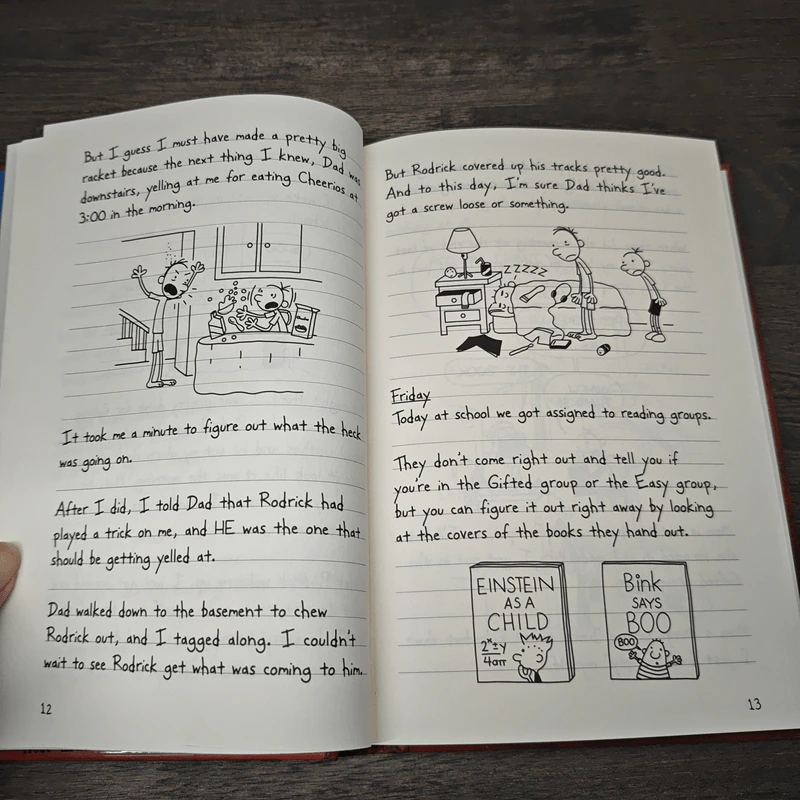 But I guess I must have made a pretty big
racket because the next thing I knew, Dad was
downstairs, yelling at me for eating Cheerios at
3:00 in the morning.
It took me a minute to figure out what the heck
was going on.
After I did, I told Dad that Rodrick had
played a trick on me, and HE was the one that
should be getting yelled at.
Dad walked down to the basement to chew
Rodrick out, and I tagged along. I couldn't
wait to see Rodrick get what was coming to him.
12
But Rodrick covered up his tracks pretty good.
And to this day, I'm sure Dad thinks I've
got a screw loose or something.
ZZZZZ
Friday
Today at school we got assigned to reading groups.
They don't come right out and tell you if
you're in the Gifted group or the Easy group,
but you can figure it out right away by looking
at the covers of the books they hand out.
EINSTEIN
AS A
CHILD
Bink
SAYS
BOO
BOO
13